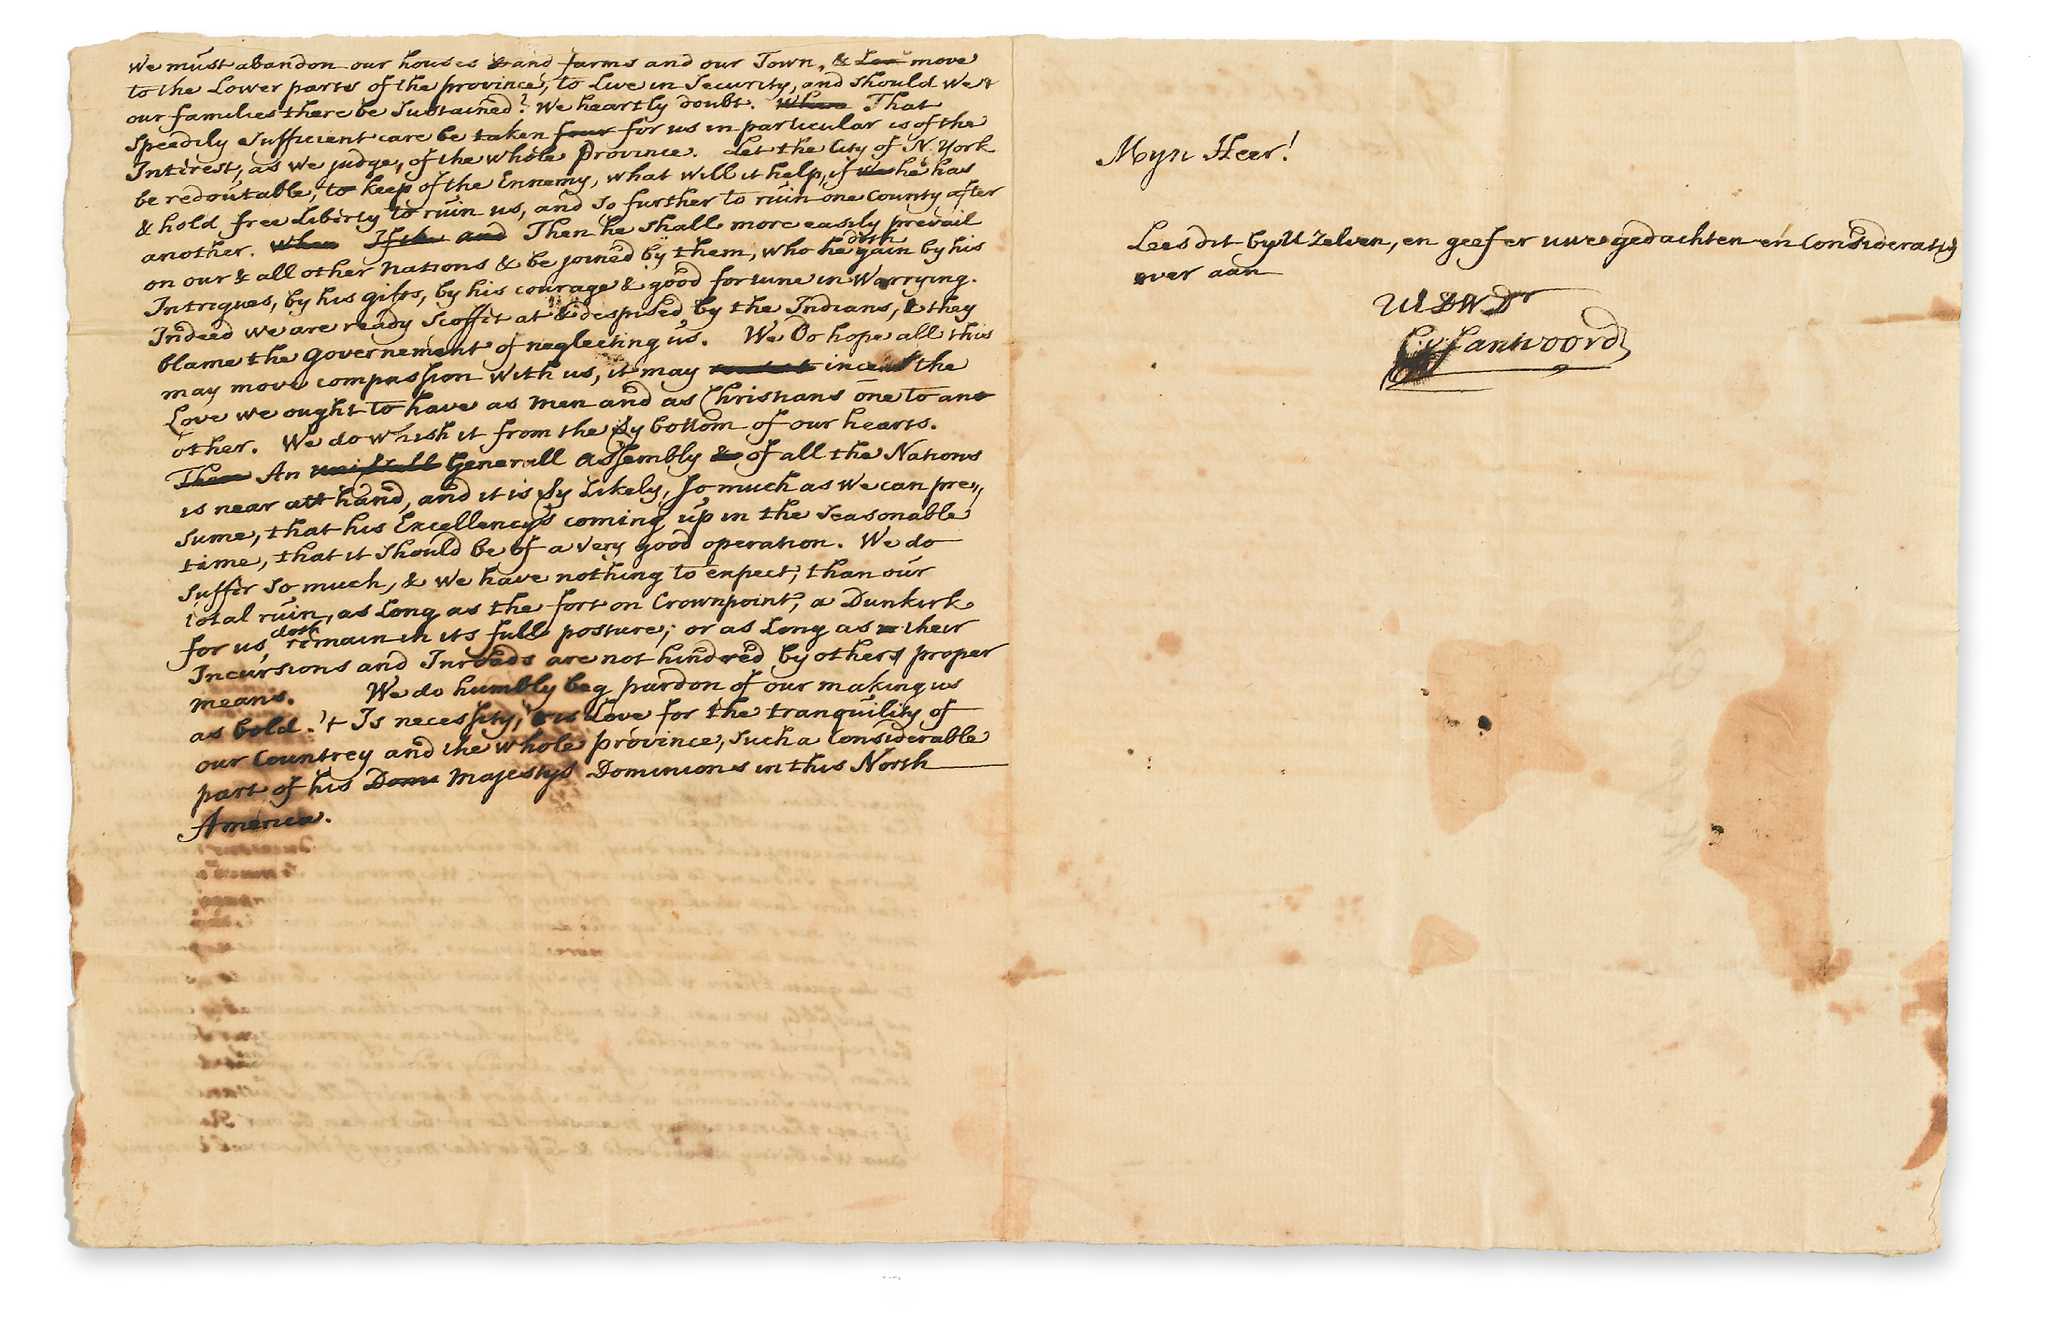 We must abandon our houses & and farms and our Town, & move
to the Lower parts of the province, to Live in Security, and should We &
our families there be Sustained? We heartly doubt. When That
Speedily Sufficient care be taken four for us in particular is of the
Interest, as we judge, of the whole province. Let the City of N. York
be redoutable, to keep of the Ennemy, what will it help, if he has
& hold free Liberty to ruin us, and so further to ruin one County after
another. When If the and Then he shall more easily prevail
on our & all other Nations & be joined by them, who he doth gain by his
Intrigues, by his gifts, by his courage & good fortune in Warrying.
Indeed we are ready Scoffit at & despised by the Indians, & they
blame the Governement of neglecting us. We Do hope all this
may move compassion with us, it may incent the
Love we ought to have as Men and as Christians one to an
other. We do whish it from the vy bottom of our hearts.
Then An Generall Assembly & of all the Nations
is near att hand, and it is vy Likely, so much as We can pre,,
sume, that his Excellency's coming up in the Seasonable
time, that it should be of a very good operation. We do
suffer so much, & we have nothing to expect, than our
total ruin, as Long as the fort on Crownpoint, a Dunkirk
for us, doth remain in its full posture; or as Long as their
Incursions and Inroads are not hindred by others proper
means. We do humbly beg pardon of our making us
as bold. 't Is necessity, 't is Love for the tranquility of
our Countrey and the whole province, such a Considerable
part of his Domi Majestys Dominions in this North
America.
Myn Heer!
Lees dit by U Zelven, en geef er uwe gedachten en Consideratis
over aan
UEDWDr
C. v. Santvoord